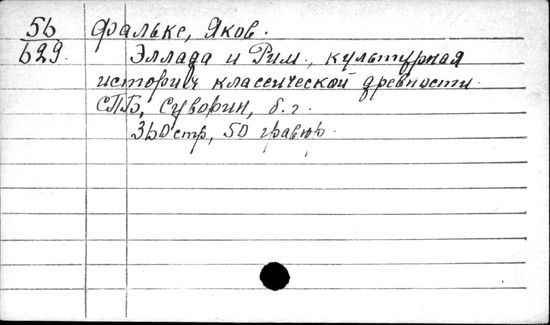 56 Фальке, Яков.
629. Эллада и Рим., культурная
история классической древности.
СПБ, Суворин, б. г.
360 стр, 50 гравюр.